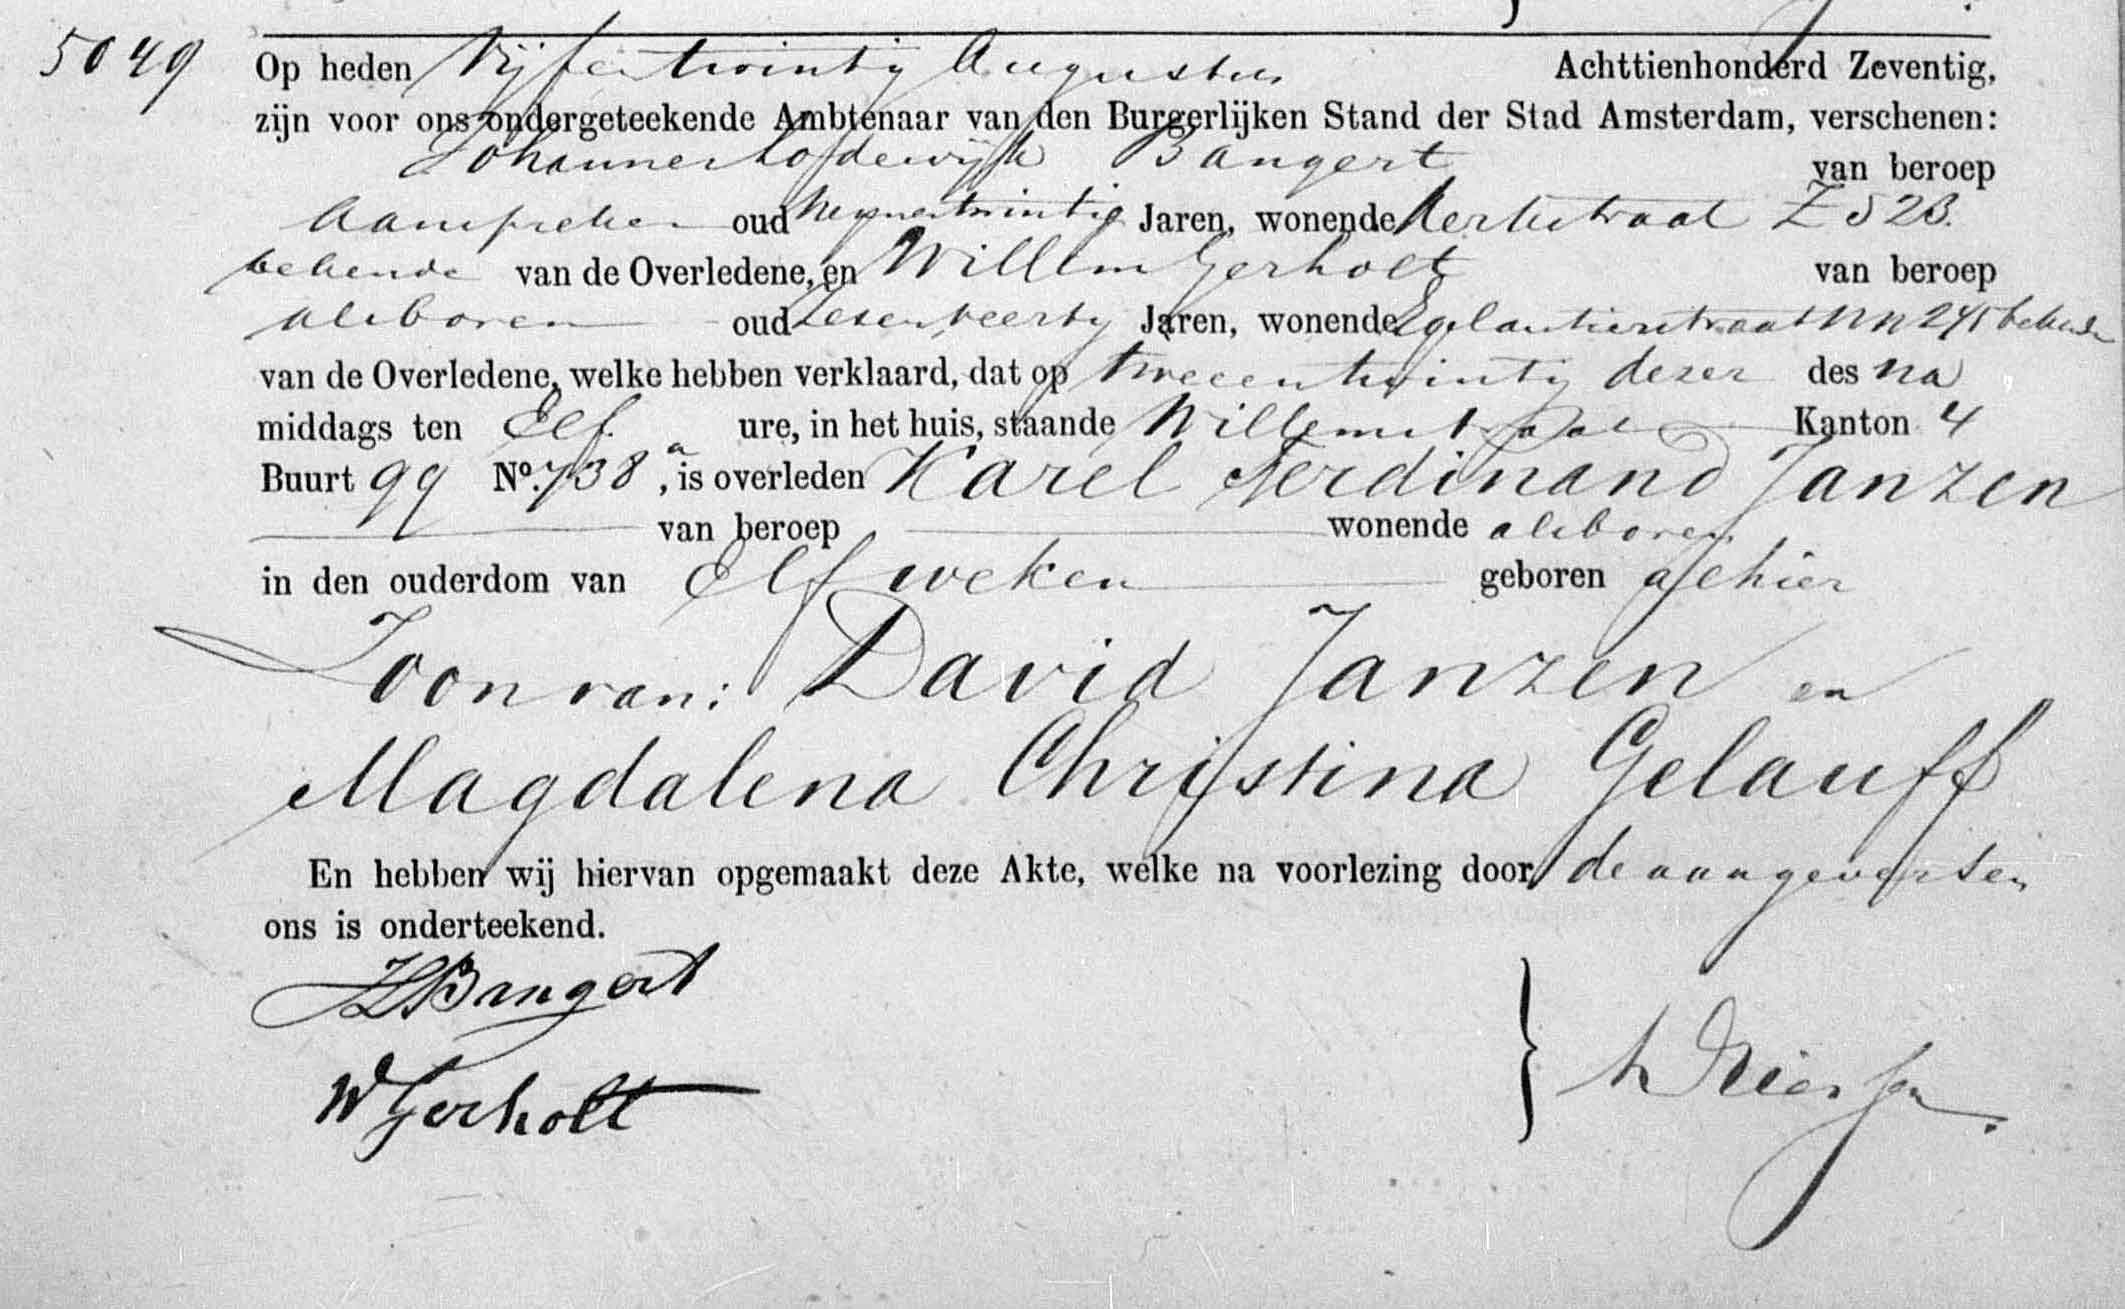 5049 Op heden Vijfentwintig Augustus Achttienhonderd Zeventig,
zijn voor ons ondergeteekende Ambtenaar van den Burgerlijken Stand der Stad Amsterdam, verschenen:
Johannes Lodewijk Bangert van beroep
Aanspreker oud Negenentwintig Jaren, wonende Kerkstraat Z 523.
bekende van de Overledene, en Willem Gerholt van beroep
alsboven oud Zesenveertig Jaren, wonende Egelantierstraat NN 245 bekende
van de Overledene, welke hebben verklaard, dat op tweeentwintig dezer des na
middags ten Elf ure, in het huis, staande Willemstraat Kanton 4
Buurt 99 No. 738a, is overleden Karel Ferdinand Janzen
van beroep wonende alsboven
in den ouderdom van Elf weken geboren alhier
Zoon van: David Janzen en
Magdalena Christina Gelauff
En hebben wij hiervan opgemaakt deze Akte, welke na voorlezing door de aangevers en
ons is onderteekend.
JLBangert
WGerholt